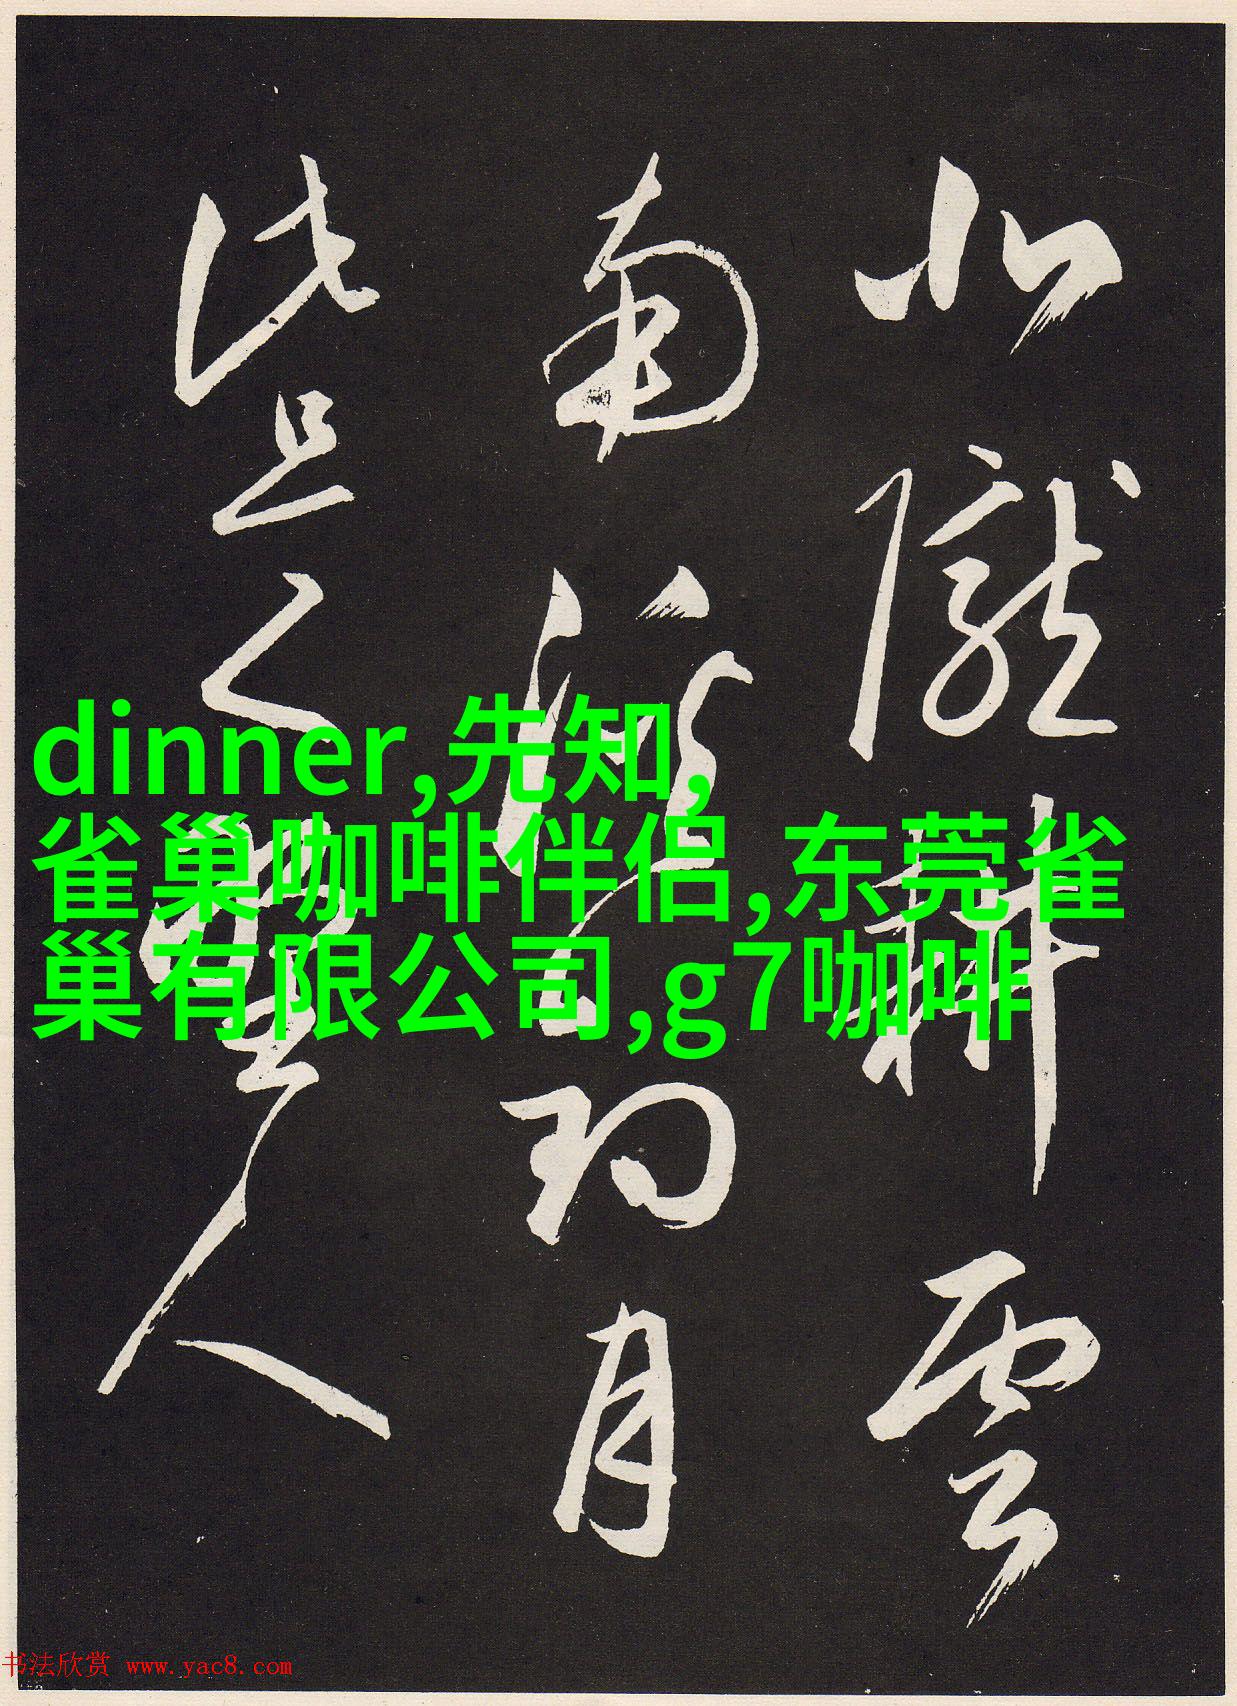 北隴耕雲
南溪釣月
此是野人
dinner,先知,
雀巢咖啡伴侣,东莞雀
巢有限公司,g7咖啡
书法欣赏 www.yac8.com